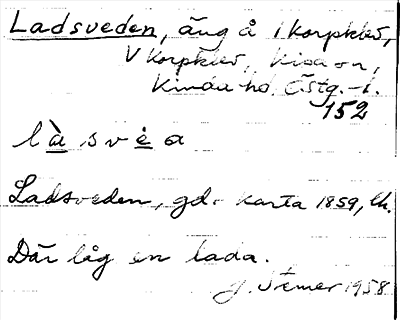 Ladsveden, äng å 1 Korpklev,
V Korpklev, Kisa sn,
Kinda hd. Östg. l.
152
l à s v è a
Ladsveden, gd. karta 1859, lk.
Där låg en lada.
J. Stemer 1958